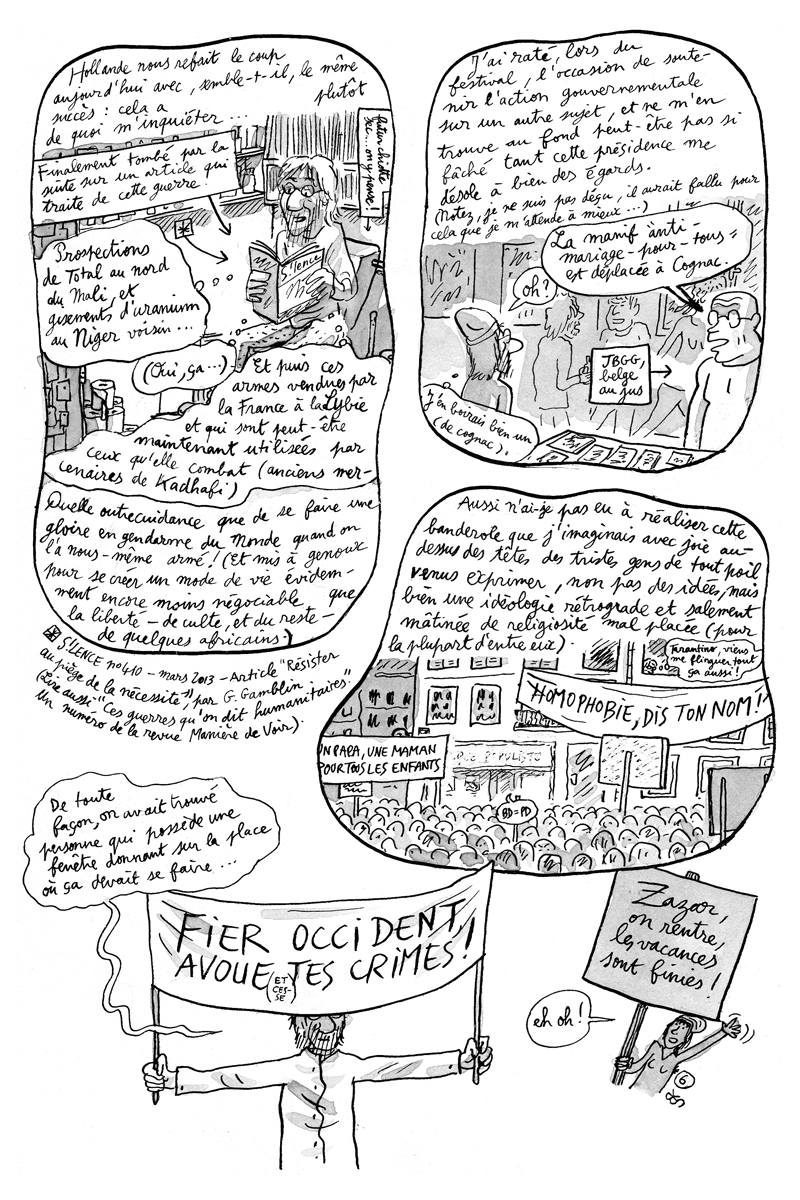 Hollande nous refait le coup
aujourd'hui avec, semble-t-il, le même
succès : cela a plutôt
de quoi m'inquiéter ...
Finalement tombé par la
suite sur un article qui
traite de cette guerre.
futur chiotte
sec... on y pense !
*
Silence
Prospections
de Total au nord
du Mali, et
gisements d'uranium
au Niger voisin ...
(Oui, ça...)
Et puis ces
armes vendues par
la France à la Lybie
et qui sont peut-être
maintenant utilisées par
ceux qu'elle combat (anciens mer-
cenaires de Kadhafi)
Quelle outrecuidance que de se faire une
gloire en gendarme du monde quand on
l'a nous-même armé ! (Et mis à genoux
pour se créer un mode de vie évidem-
ment encore moins négociable que
la liberté – de culte, et du reste –
de quelques africains.)
* S!LENCE n°410 – mars 2013 – Article "Résister
au piège de la nécessité", par G. Gamblin
(Lire aussi "Ces guerres qu'on dit humanitaires".
Un numéro de la revue Manière de Voir).
J'ai raté, lors du
festival, l'occasion de soute-
nir l'action gouvernementale
sur un autre sujet, et ne m'en
trouve au fond peut-être pas si
fâché tant cette présidence me
désole à bien des égards.
(Notez, je ne suis pas déçu, il aurait fallu pour
cela que je m'attende à mieux ...)
La manif "anti-
mariage-pour-tous"
est déplacée à Cognac.
oh ?
JBGG,
belge
au jus
J'en boirais bien un
(de cognac).
Aussi n'ai-je pas eu à réaliser cette
banderole que j'imaginais avec joie au-
dessus des têtes des tristes gens de tout poil
venus exprimer, non pas des idées, mais
bien une idéologie rétrograde et salement
mâtinée de religiosité mal placée (pour
la plupart d'entre eux).
Tarantino, viens
me flinguer tout
ça aussi !
HOMOPHOBIE, DIS TON NOM !
UN PAPA, UNE MAMAN
POUR TOUS LES ENFANTS
BD=PD
De toute
façon, on avait trouvé
personne qui possède une
fenêtre donnant sur la place
où ça devait se faire ...
FIER OCCIDENT,
AVOUE (ET CES-SE) TES CRIMES !
Zazar,
on rentre,
les vacances
sont finies !
eh oh !
6